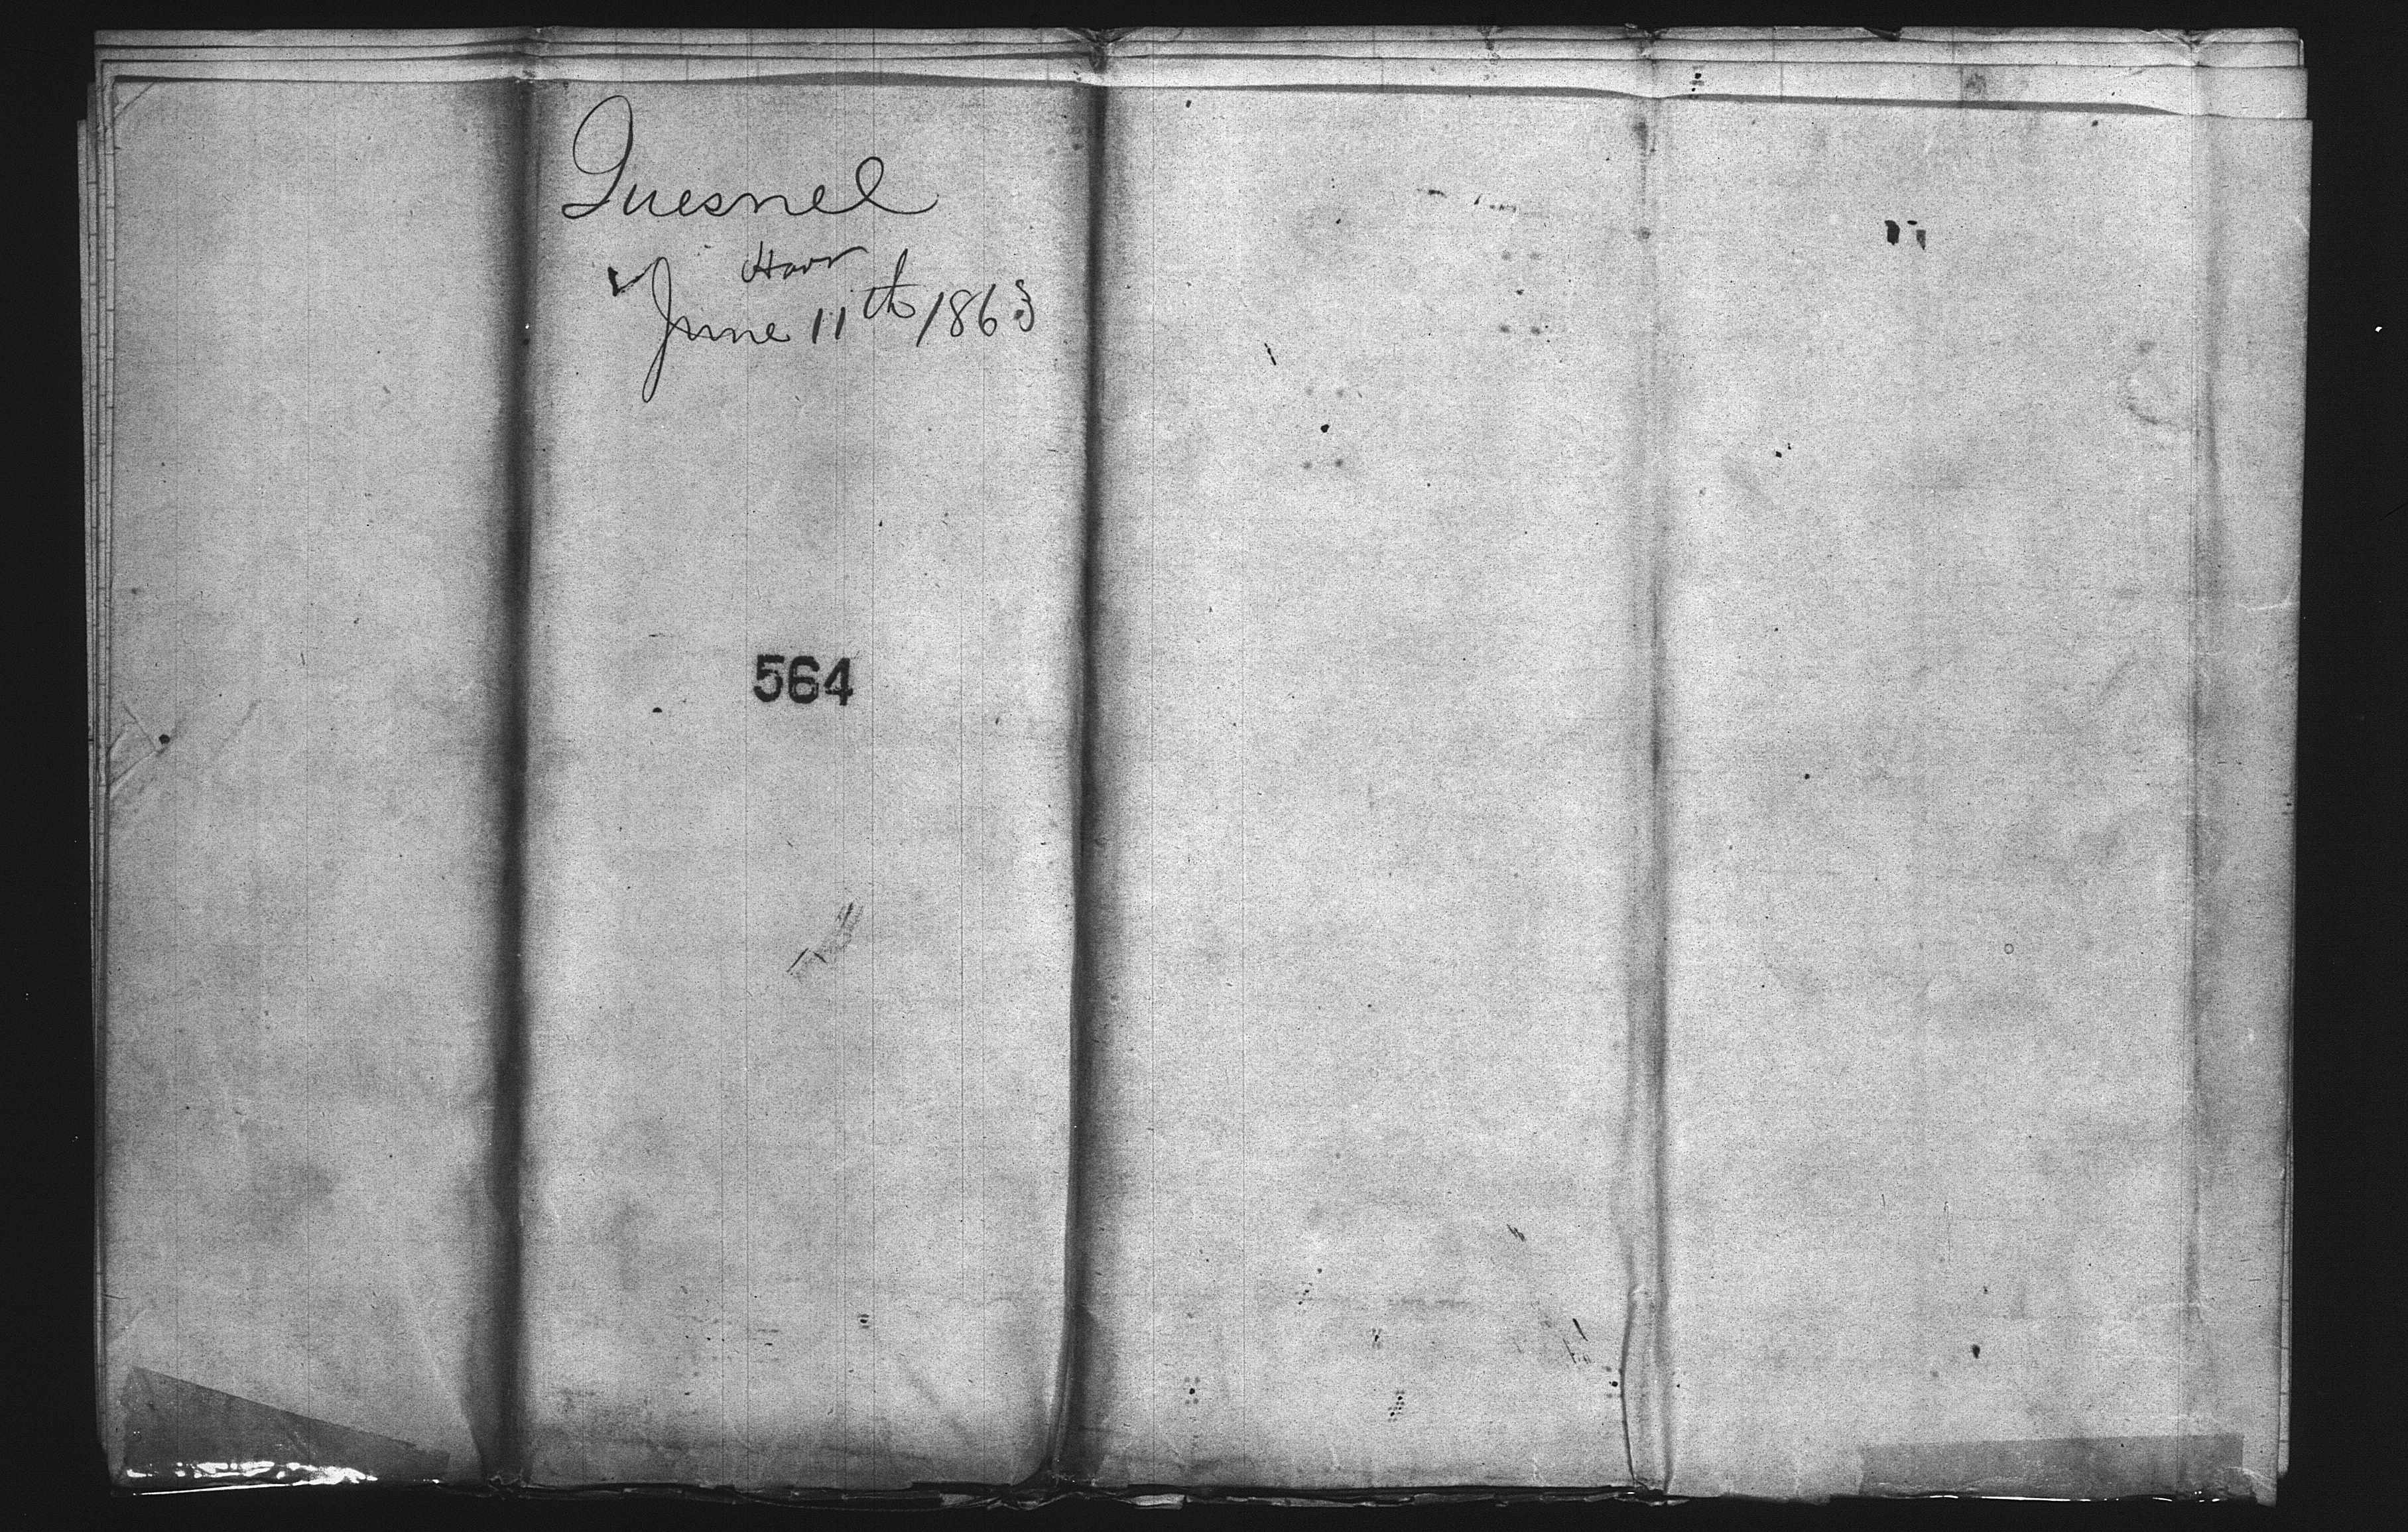 Quesnel
June 11th 1863
564